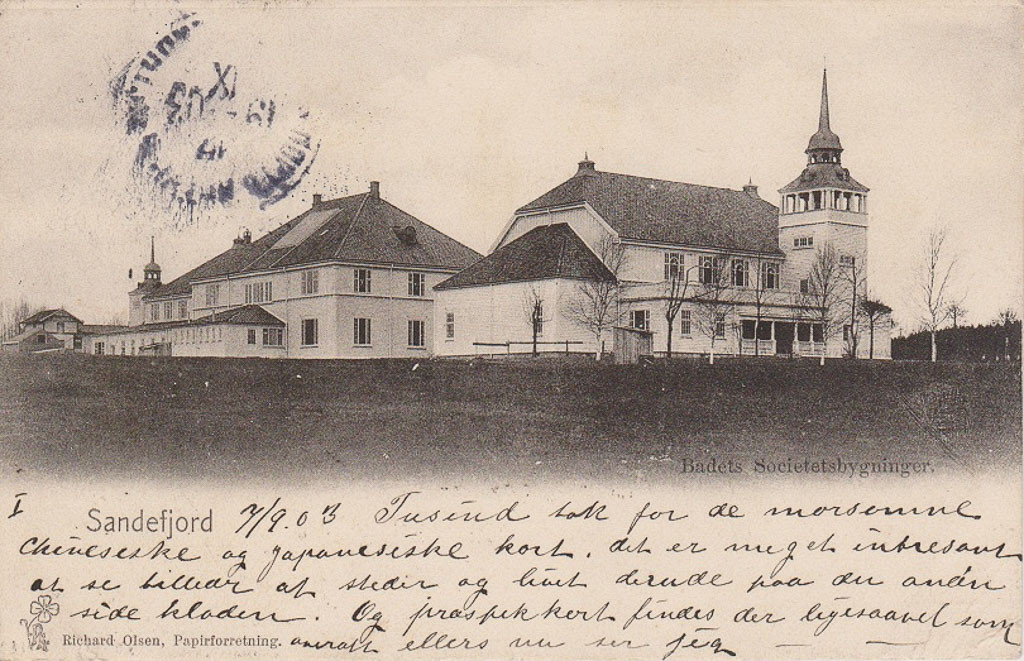 Badets Societetsbygninger.
I
Sandefjord 7/9.03 Tusind tak for de morsomme
chinesiske og japanesiske kort. det er meget intresant
at se billeder af steder og livet derude paa den anden
side kloden. Og prospekkort findes der ligesaavel som
Richard Olsen, Papirforretning. overalt ellers nu ser jeg